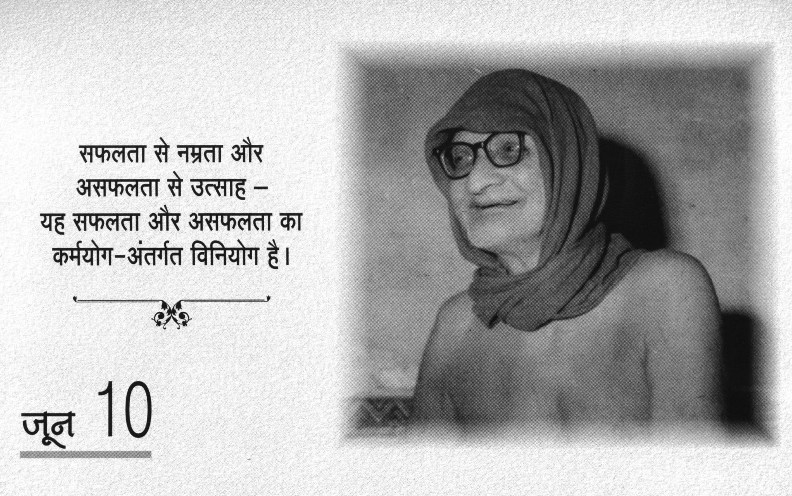 सफलता से नम्रता और
असफलता से उत्साह –
यह सफलता और असफलता का
कर्मयोग-अंतर्गत विनियोग है।
जून 10